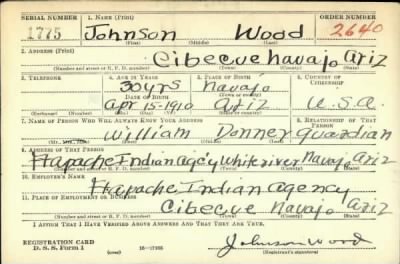 SERIAL NUMBER 1. NAME (Print) ORDER NUMBER
1775 Johnson Wood 2640
(First) (Middle) (Last)
2. ADDRESS (Print)
Cibecue Navajo Ariz
(Number and street or R. F. D. number) (Town) (County) (State)
3. TELEPHONE 4. AGE IN YEARS 5. PLACE OF BIRTH 6. COUNTRY OF CITIZENSHIP
30 yrs Navajo
DATE OF BIRTH (Town or county)
Apr 15-1910 Ariz U.S.A.
(Exchange) (Mo.) (Day) (Yr.) (State or country)
7. NAME OF PERSON WHO WILL ALWAYS KNOW YOUR ADDRESS 8. RELATIONSHIP OF THAT PERSON
William Donner guardian
(Mr., Mrs., Miss) (First) (Middle) (Last)
9. ADDRESS OF THAT PERSON
Ftapache Indian Agcy Whiteriver Navajo Ariz
(Number and street or R. F. D. number) (Town) (County) (State)
10. EMPLOYER'S NAME
Ftapache Indian Agency
11. PLACE OF EMPLOYMENT OR BUSINESS
Cibecue Navajo Ariz
(Number and street or R. F. D. number) (Town) (County) (State)
I AFFIRM THAT I HAVE VERIFIED ABOVE ANSWERS AND THAT THEY ARE TRUE.
REGISTRATION CARD
D. S. S. Form 1 (over) Johnson Wood
(Registrant's signature)